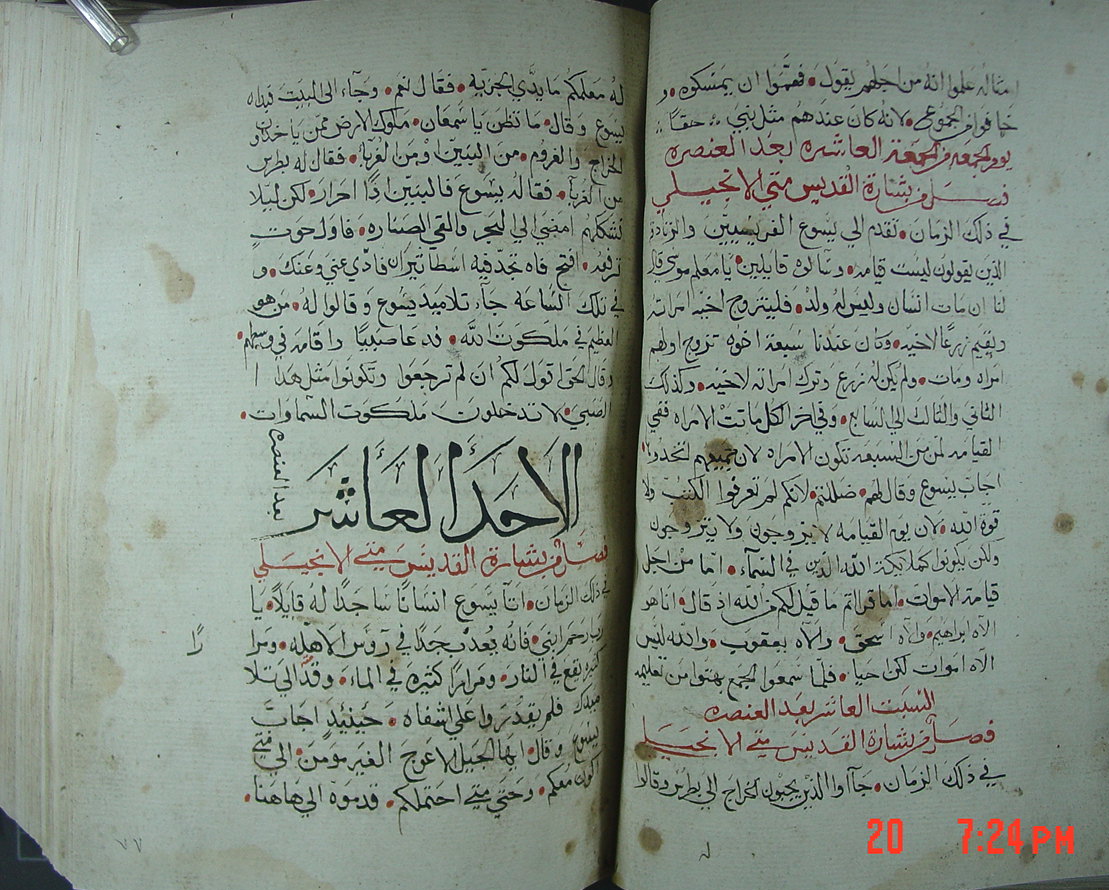 امثاله علموا انه من اجلهم يقول • فهمّوا ان يمسكوه • و
خافوا من الجموع • لانه كان عندهم مثل نبي حقًا
يوم الجمعه من الجمعة العاشره بعد العنصره
فصل من بشارة القديس متي الانجيلي
في ذلك الزمان • تقدم الي يسوع الفريسيين والزنادقة
الذين يقولون ليست قيامه • وسألوه قايلين • يا معلم موسي قال
لنا ان مات انسان وليس له ولد • فليتزوج اخيه امراته
ويقيم زرعًا لاخيه • وكان عندنا سبعة اخوه تزوج اولهم
امراه ومات • ولم يكن له زرع وترك امراته لاخيه • وكذلك
الثاني والثالث الي السابع • وفي اخر الكل ماتت الامراه ففي
القيامه لمن من السبعه تكون الامراه لان جميعهم اتخذوها
اجاب يسوع وقال لهم • ضللتم • لانكم لم تعرفوا الكتب ولا
قوة الله • لان يوم القيامه لا يتزوجون ولا يتزوجون
ولكن يكونوا كملائكة الله الذين في السمآء • امّا من اجل
قيامة الاموات • اما قراتم ما قيل لكم من الله اذ قال • انا هو
الاه ابراهيم • والاه اسحق • والاه يعقوب • والله ليس
الاه اموات لكن احيا • فلمّا سمعوا الجمع بهتوا من تعليمه
السبت العاشر بعد العنصره
فصل من بشارة القديس متي الانجيلي
في ذلك الزمان • جاآوا الذين يجبون الخراج الي بطرس وقالوا
له معلمكم ما يودّي الجزيه • فقال نعم • وجآء الي البيت فبداه
يسوع وقال • ما تظن يا سمعان • ملوك الارض ممن ياخذون
الخراج والغروم • من البنين او من الغربآء • فقال له بطرس
من الغربآ • فقال له يسوع فالبنين اذًا احرار • لكن ليلا
نشككهم امضي الي البحر والقي الصناره • فاول حوتٍ
ترفعه • افتح فاه تجد فيه اسطاتيران فادّي عني وعنك • و
في تلك الساعه جآء تلاميذ يسوع وقالوا له • من هو
العظيم في ملكوت الله • فدعا صبيًا واقامه في وسطهم •
وقال الحق اقول لكم ان لم ترجعوا وتكونوا مثل هذا
الصبي • لا تدخلون ملكوت السماوات •
الاحد العاشر
بعد العنصره
فصل من بشارة القديس متي الانجيلي
في ذلك الزمان • اتا يسوع انسانًا ساجدًا له قايلاً • يا
رب ارحم ابني • فانه يُعذب جدًا في روس الاهله • ومرا
رًا
كثيره يقع في النار • ومرارًا كثيره في الماء • وقدّ الي تلا
ميدك فلم يقدروا علي اشفاه • حينيذٍ اجاب
يسوع وقال • ايها الجيل الاعوج الغير مومن • الي متي
اكون معكم • وحتي متي احتملكم • قدموه الي هاهنا •
٧٧
20 7:24 PM